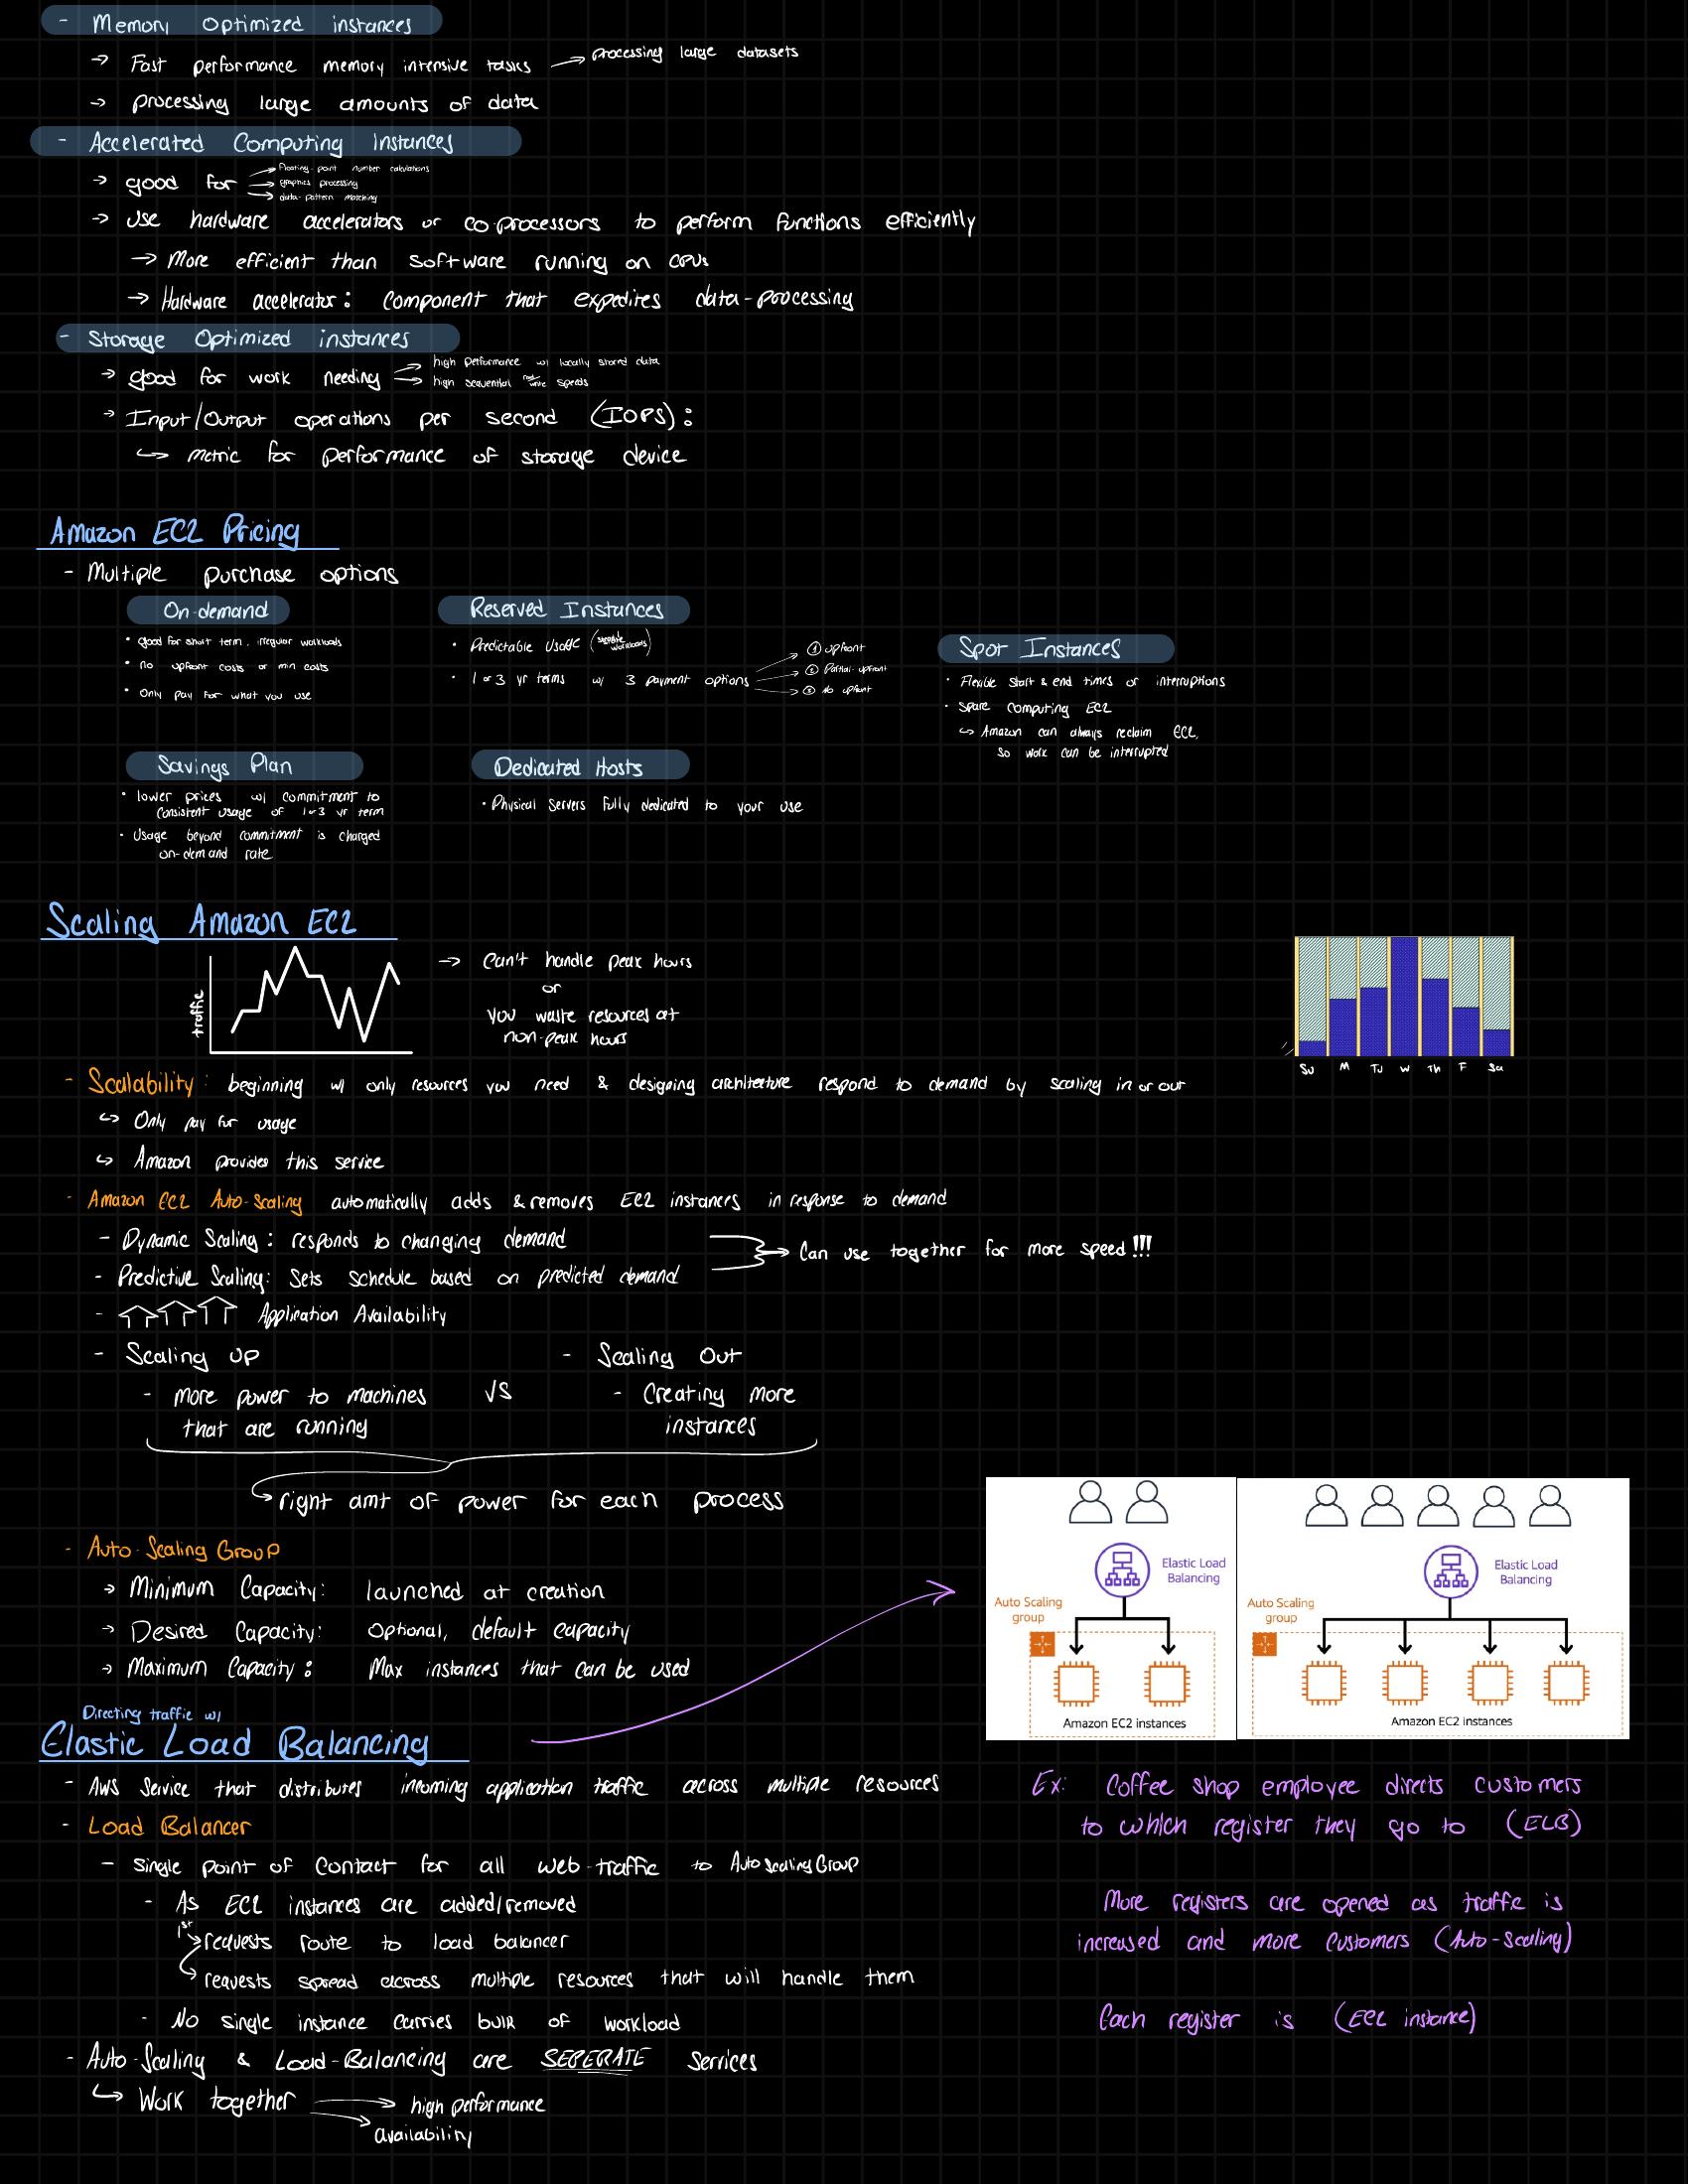 - Memory Optimized instances
→ Fast performance memory intensive tasks → processing large datasets
→ processing large amounts of data
- Accelerated Computing Instances
→ good for → floating-point number calculations
→ graphics processing
→ data-pattern matching
→ Use hardware accelerators or co-processors to perform functions efficiently
→ More efficient than software running on CPUs
→ Hardware accelerator: component that expedites data-processing
- Storage Optimized instances
→ good for work needing → high performance w/ locally stored data
→ high sequential read write speeds
→ Input/Output operations per second (IOPS):
↪ metric for performance of storage device
Amazon EC2 Pricing
- Multiple purchase options
On-demand
• good for short term, irregular workloads
• no upfront costs or min costs
• Only pay for what you use
Reserved Instances
• Predictable Usage (steady workloads)
• 1 or 3 yr terms w/ 3 payment options → ① upfront
→ ② Partial-upfront
→ ③ No upfront
Spot Instances
• Flexible start & end times or interruptions
• Spare Computing EC2
↪ Amazon can always reclaim EC2,
so work can be interrupted
Savings Plan
• lower prices w/ commitment to
consistent usage of 1 or 3 yr term
• Usage beyond commitment is charged
on-demand rate
Dedicated Hosts
• Physical Servers fully dedicated to your use
Scaling Amazon EC2
traffic
→ Can't handle peak hours
or
you waste resources at
non-peak hours
Su M Tu W Th F Sa
- Scalability: beginning w/ only resources you need & designing architecture respond to demand by scaling in or out
↪ Only pay for usage
↪ Amazon provides this service
- Amazon EC2 Auto-Scaling automatically adds & removes EC2 instances in response to demand
- Dynamic Scaling: responds to changing demand
- Predictive Scaling: Sets schedule based on predicted demand
→ Can use together for more speed!!!
- ⇧⇧⇧ Application Availability
- Scaling Up
- more power to machines
that are running
VS
- Scaling Out
- Creating more
instances
↪ right amt of power for each process
- Auto-Scaling Group
→ Minimum Capacity: launched at creation
→ Desired Capacity: Optional, default capacity
→ Maximum Capacity: Max instances that can be used
Elastic Load
Balancing
Auto Scaling
group
Amazon EC2 instances
Elastic Load
Balancing
Auto Scaling
group
Amazon EC2 instances
Directing traffic w/
Elastic Load Balancing
- AWS Service that distributes incoming application traffic across multiple resources
- Load Balancer
- Single point of Contact for all web-traffic to Auto Scaling Group
- As EC2 instances are added/removed
1st → requests route to load balancer
↪ requests spread across multiple resources that will handle them
- No single instance carries bulk of workload
- Auto-Scaling & Load-Balancing are SEPERATE Services
↪ Work together → high performance
→ availability
Ex: Coffee shop employee directs customers
to which register they go to (ELB)
More registers are opened as traffic is
increased and more customers (Auto-scaling)
Each register is (EC2 instance)